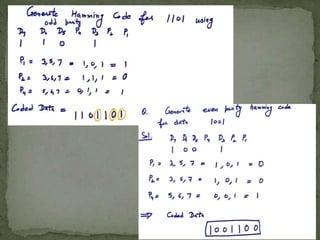 Generate Hamming Code for 1101 using
odd parity
D7 D6 D5 P4 D3 P2 P1
1 1 0 1
P1 = 3,5,7 = 1,0,1 = 1
P2 = 3,6,7 = 1,1,1 = 0
P4 = 5,6,7 = 0,1,1 = 1
Coded Data =
1 1 0 1 1 0 1
Q. Generate even parity hamming code
for data 1001
Sol.
D7 D6 D5 P4 D3 P2 P1
1 0 0 1
P1 = 3, 5, 7 = 1, 0, 1 = 0
P2 = 3, 6, 7 = 1, 0, 1 = 0
P4 = 5, 6, 7 = 0, 0, 1 = 1
⇒ Coded Data
1 0 0 1 1 0 0